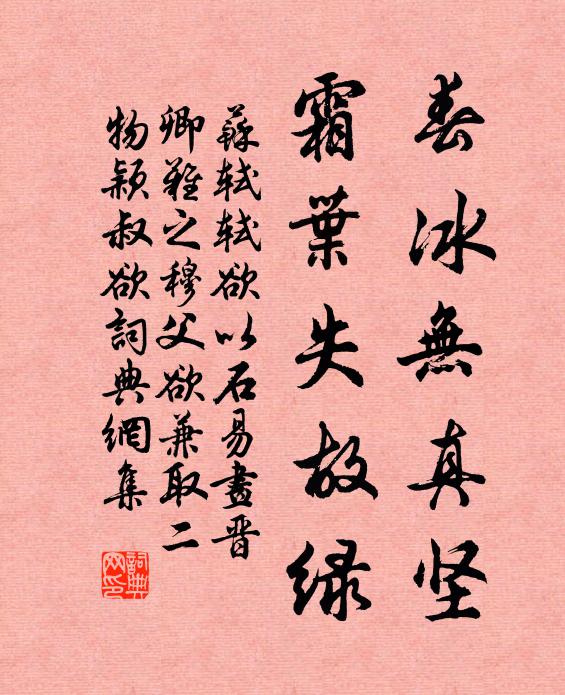 春冰無真坚
霜葉失故绿
蘇轼轼欲以石易畫晋
卿難之穆父欲兼取二
物颖叔欲詞典網集
詞典网印